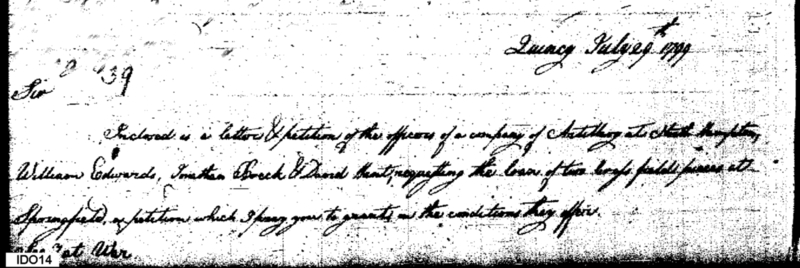 Quincy July 29th 1799
39
Sir
Inclosed is a letter & petition of the officers of a company of Artillery at North Hampton,
William Edwards, Jonathan & David Hunt, requesting the loan of two brass field pieces at
Springfield, a petition which I pray you to grant, on the conditions they offer.
at War
IDO14